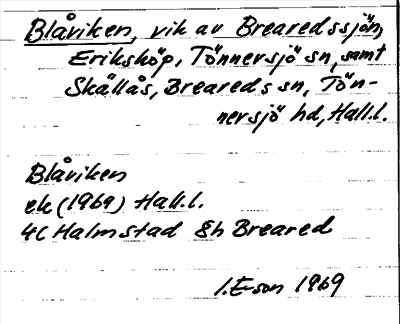 Blåviken, vik av Brearedssjön,
Eriksköp, Tönnersjö sn, samt
Skällås, Breareds sn, Tön-
nersjö hd, Hall.l.
Blåviken
ek (1969) Hall.l.
4C Halmstad Sh Breared
I. E-son 1969